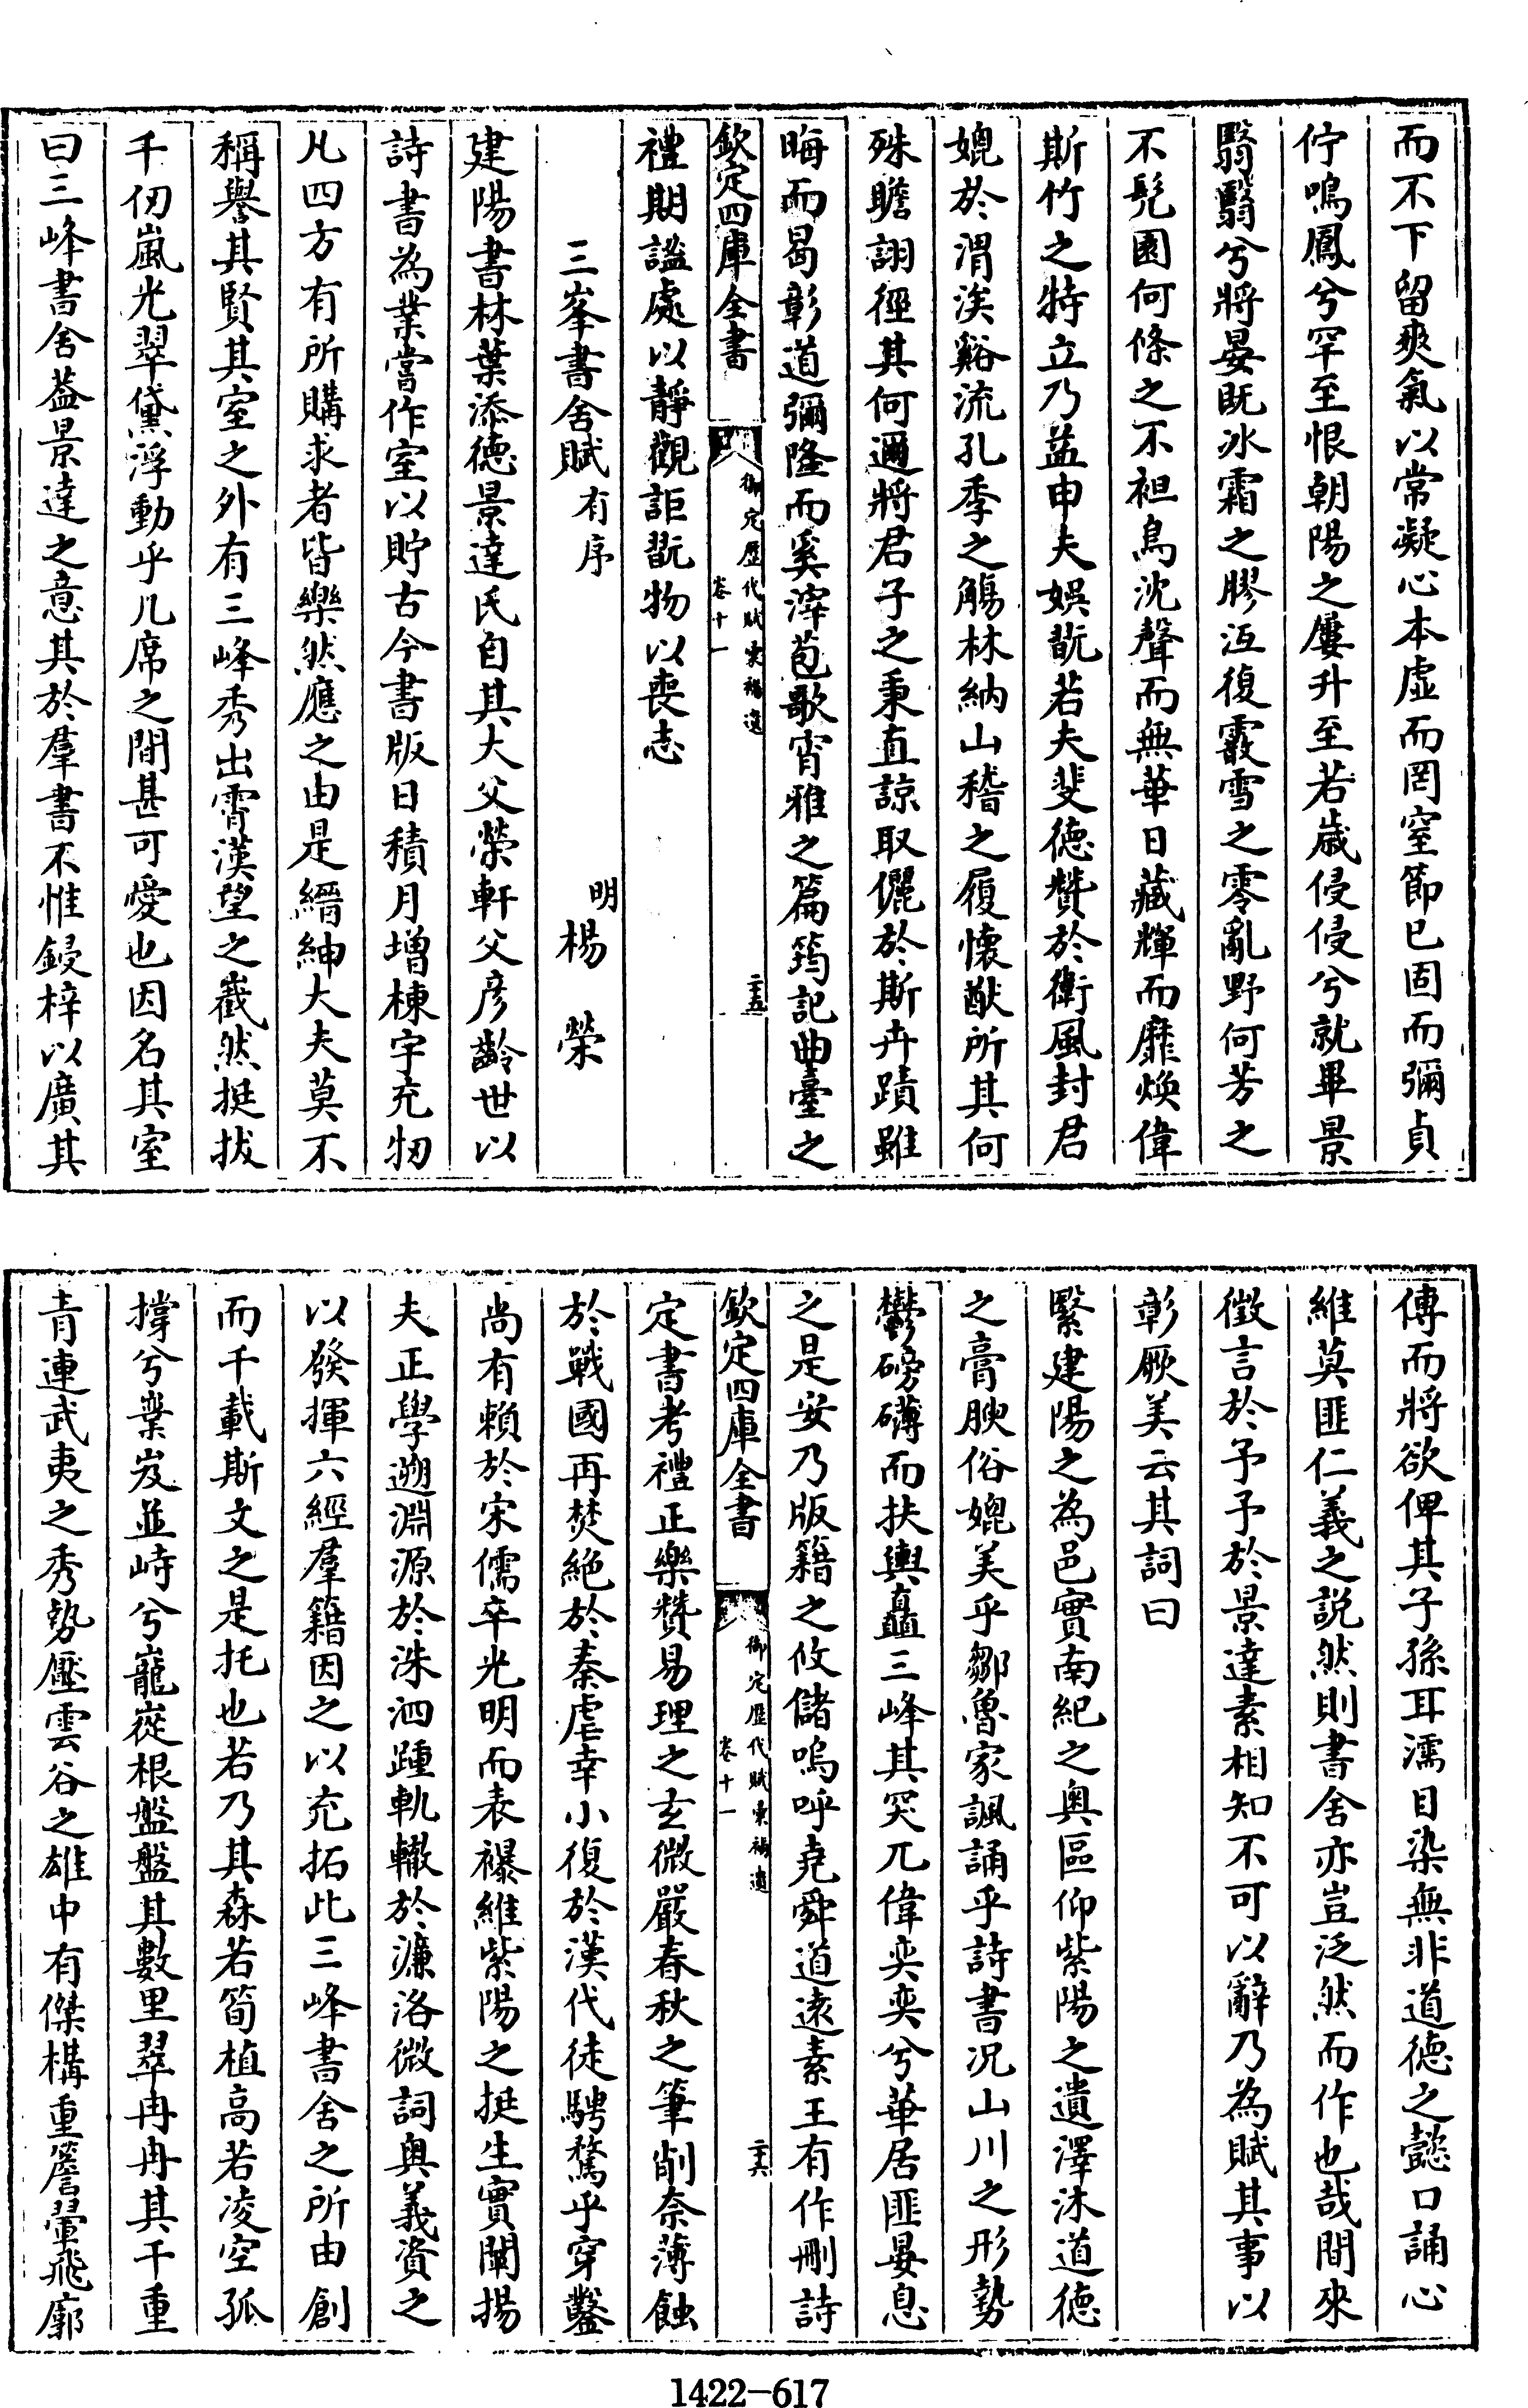 而不下留爽氣以常凝心本虛而罔窒節已固而彌貞
佇鳴鳳兮罕至恨朝陽之屢升至若歳侵侵兮就畢景
翳翳兮將晏既冰霜之膠沍復霰雪之零亂野何芳之
不髠園何條之不袒烏沈聲而無華日藏輝而靡煥偉
斯竹之特立乃益申夫娯翫若夫斐德贊於衛風封君
媲於渭涘谿流孔季之觴林納山稽之履懷猷所其何
殊瞻詡徑其何邇將君子之秉直諒取儷於斯卉蹟雖
晦而曷彰道彌隆而奚滓苞歌宵雅之篇筠記曲臺之
欽定四庫全書
御定歷代賦彙補遺
卷十一
二十五
禮期謐處以靜觀詎翫物以喪志
三峯書舍賦有序
明楊榮
建陽書林葉添德景達氏自其大父榮軒父彥齡世以
詩書為業當作室以貯古今書版日積月增棟宇充牣
凡四方有所購求者皆樂然應之由是縉紳大夫莫不
稱譽其賢其室之外有三峰秀出霄漢望之巀然挺拔
千仞嵐光翠黛浮動乎几席之間甚可愛也因名其室
曰三峰書舍葢景達之意其於羣書不惟鋟梓以廣其
傳而將欲俾其子孫耳濡目染無非道德之懿口誦心
維莫匪仁義之説然則書舍亦豈泛然而作也哉間來
徵言於予予於景達素相知不可以辭乃為賦其事以
彰厥美云其詞曰
繄建陽之為邑實南紀之奥區仰紫陽之遺澤沐道德
之膏腴俗媲美乎鄒魯家諷誦乎詩書况山川之形勢
鬱磅礴而扶輿矗三峰其突兀偉奕奕兮華居匪晏息
之是安乃版籍之攸儲嗚呼堯舜道逺素王有作刪詩
欽定四庫全書
御定歷代賦彙補遺
卷十一
二十六
定書考禮正樂贊易理之玄微嚴春秋之筆削奈薄蝕
於戰國再焚絶於秦虐幸小復於漢代徒騁騖乎穿鑿
尚有賴於宋儒卒光明而表襮維紫陽之挺生實闡揚
夫正學遡淵源於洙泗踵軌轍於濂洛微詞奥義資之
以發揮六經羣籍因之以充拓此三峰書舍之所由創
而千載斯文之是托也若乃其森若筍植高若凌空孤
撐兮業岌並峙兮巃嵷根盤盤其數里翠冉冉其千重
青連武夷之秀勢壓雲谷之雄中有傑構重簷翬飛廓
1422-617